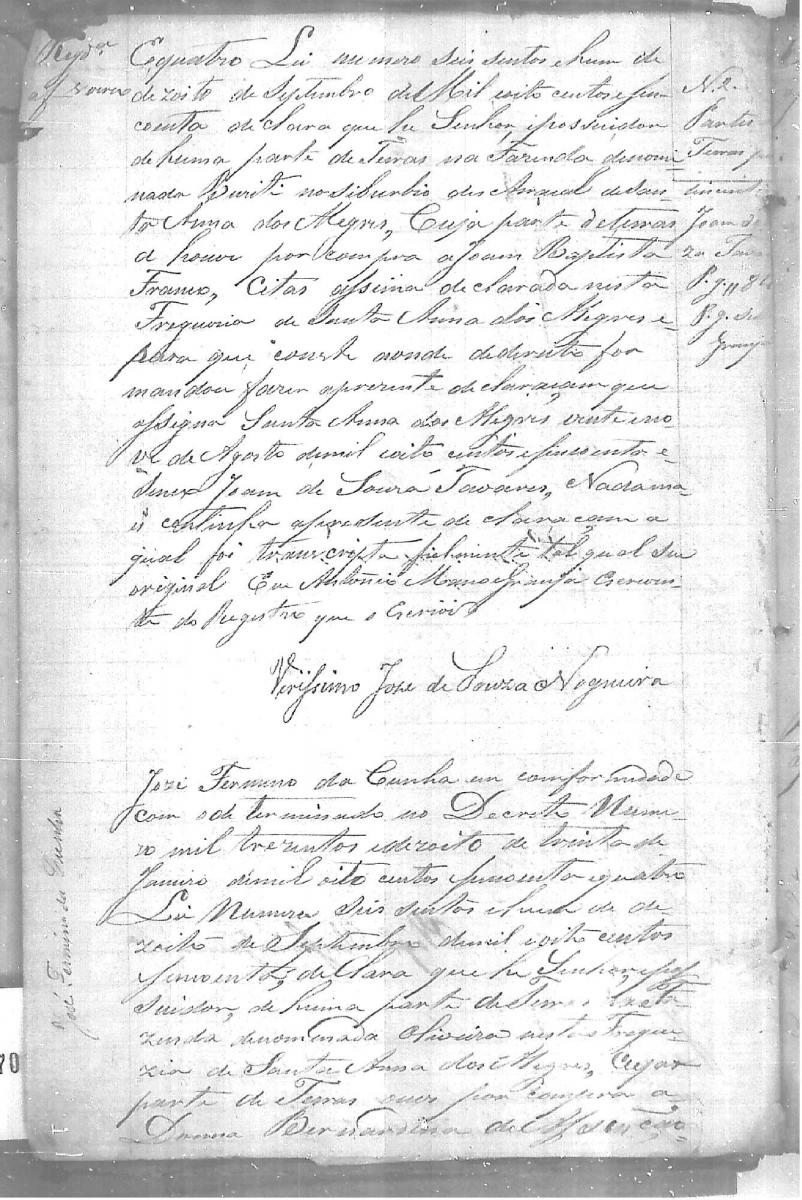 Equatro Lei numero seis sentos ehum de
dezoito de Septembro de Mil oito centos esin
coenta de clara que he Senhor, epossuidor
de huma parte de Terras na Fazenda denomi
nada Buriti no Suburbio des Arraial de San
ta Anna dos Alegres, Cuja parte de terras
a houve por compra a Joam Baptista
Franco, Citas assima declarada nesta
Freguezia de Santa Anna dos Alegres e
para que conste aonde de dereito for
mandou fazer aprezente declaracam que
assigna Santa Anna dos Alegres vinte eno
ve de Agosto demil oito centos esincoenta e
sinco Joam de Souza Tavares, Nada ma
is continha aprezente de claracam a
qual foi transcripta fielmente tal qual seu
original Eu Antonio Granja Escreven
te do Registro que o Escrevi
Verissimo Joze de Souza Nogueira
Jozé Fermino da Cunha em comformidade
com ode terminado no Decreto Nume
ro mil trezentos edezoito de trinta de
Janeiro demil oito centos esincoenta equatro
Lei Numero Seis sentos ehum de de
zoito de Septembro demil eoito centos
esincoenta, de Clara que he Senhor, epos
suidor, de huma parte de Terras
zenda denominada Oliveira nesta Fregue
zia de Santa Anna dos Alegres, Cuja
parte de Terras ouve por Compra a
Donna Bernardina de Assençao
N. 2.
Partes
Terras
Joam de
za Tava
P. g.
P. g.
Granja
José Fermino da Cunha
70